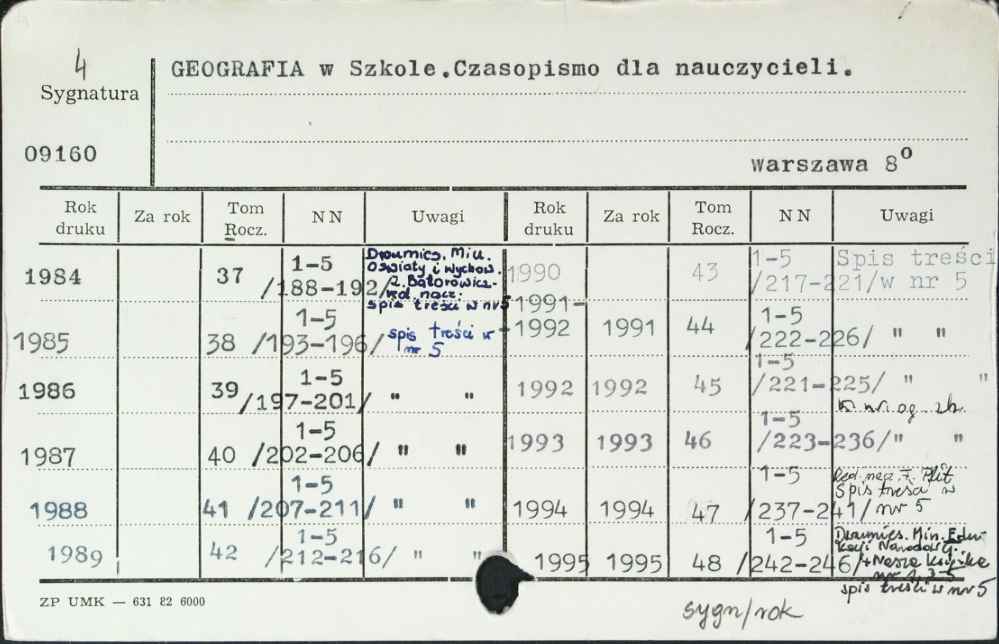 4
GEOGRAFIA w Szkole.Czasopismo dla nauczycieli.
Sygnatura
09160
Warszawa 8⁰
Rok druku Za rok Tom Rocz. NN Uwagi Rok druku Za rok Tom Rocz. NN Uwagi
1984 37 1-5 /188-192/ Dwumies. Min. Oświaty i Wychow. Batorowicz- red. nacz. spis treści w nr 5
1985 38 1-5 /193-196/ spis treści w nr 5
1986 39 1-5 /197-201/ " "
1987 40 1-5 /202-206/ " "
1988 41 1-5 /207-211/ " "
1989 42 1-5 /212-216/ " "
1990 43 1-5 /217-221/ Spis treści w nr 5
1991-1992 1991 44 1-5 /222-226/ " "
1992 1992 45 1-5 /221-225/ " "
1993 1993 46 1-5 /223-236/ " "
1994 1994 47 1-5 /237-241/ Red. nacz. F. Plit Spis treści w nr 5
1995 1995 48 1-5 /242-246/ Dwumies. Min. Edukacji Narodowej. nr 1, 3-5 spis treści w nr 5
ZP UMK — 631 82 6000
sygn/rok